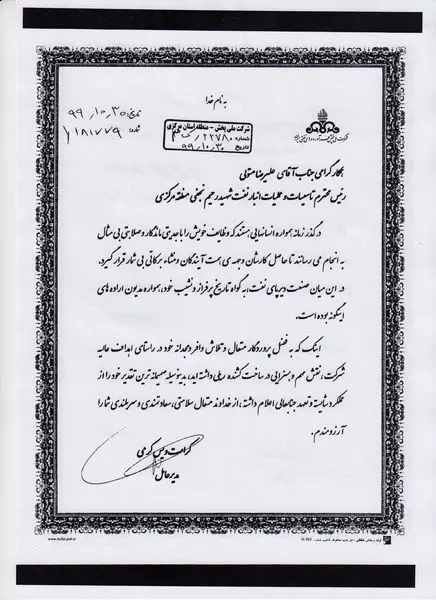 به نام خدا
تاریخ: ۹۹,۱۰,۳۰
شماره: ۱۸۱۷۷۹/
شرکت ملی پخش - منطقه استان مرکزی
شماره ۲۲۷۸۰
تاریخ ۹۹,۱۰,۳۰
همکار گرامی جناب آقای علیرضا متولی
رئیس محترم تاسیسات و عملیات انبار نفت شهید رحیم نجفی منطقه مرکزی
در گذر زمانه همواره انسانهایی هستند که وظایف خویش را با جدیتی ماندگار و صلابتی بی مثال
به انجام می رسانند تا حاصل کارشان وجهه ی همت آیندگان و منشاء برکاتی بی شمار قرار گیرد.
در این میان صنعت دیرپای نفت، به گواه تاریخ پرفراز و نشیب خود، همواره مدیون اراده های
اینگونه بوده است.
اینک که به فضل پروردگار متعال و تلاش وافر و مجدانه خود در راستای اهداف عالیه
شرکت، نقش مهم و بسزایی در ساخت کننده ریلی داشته اید، بدینوسیله صمیمانه ترین تقدیر خود را از
عملکرد شایسته و تعهد جنابعالی اعلام داشته، از خداوند متعال سلامتی، سعادتمندی و سربلندی شما را
آرزومندم.
کرامت ویس کرمی
مدیرعامل